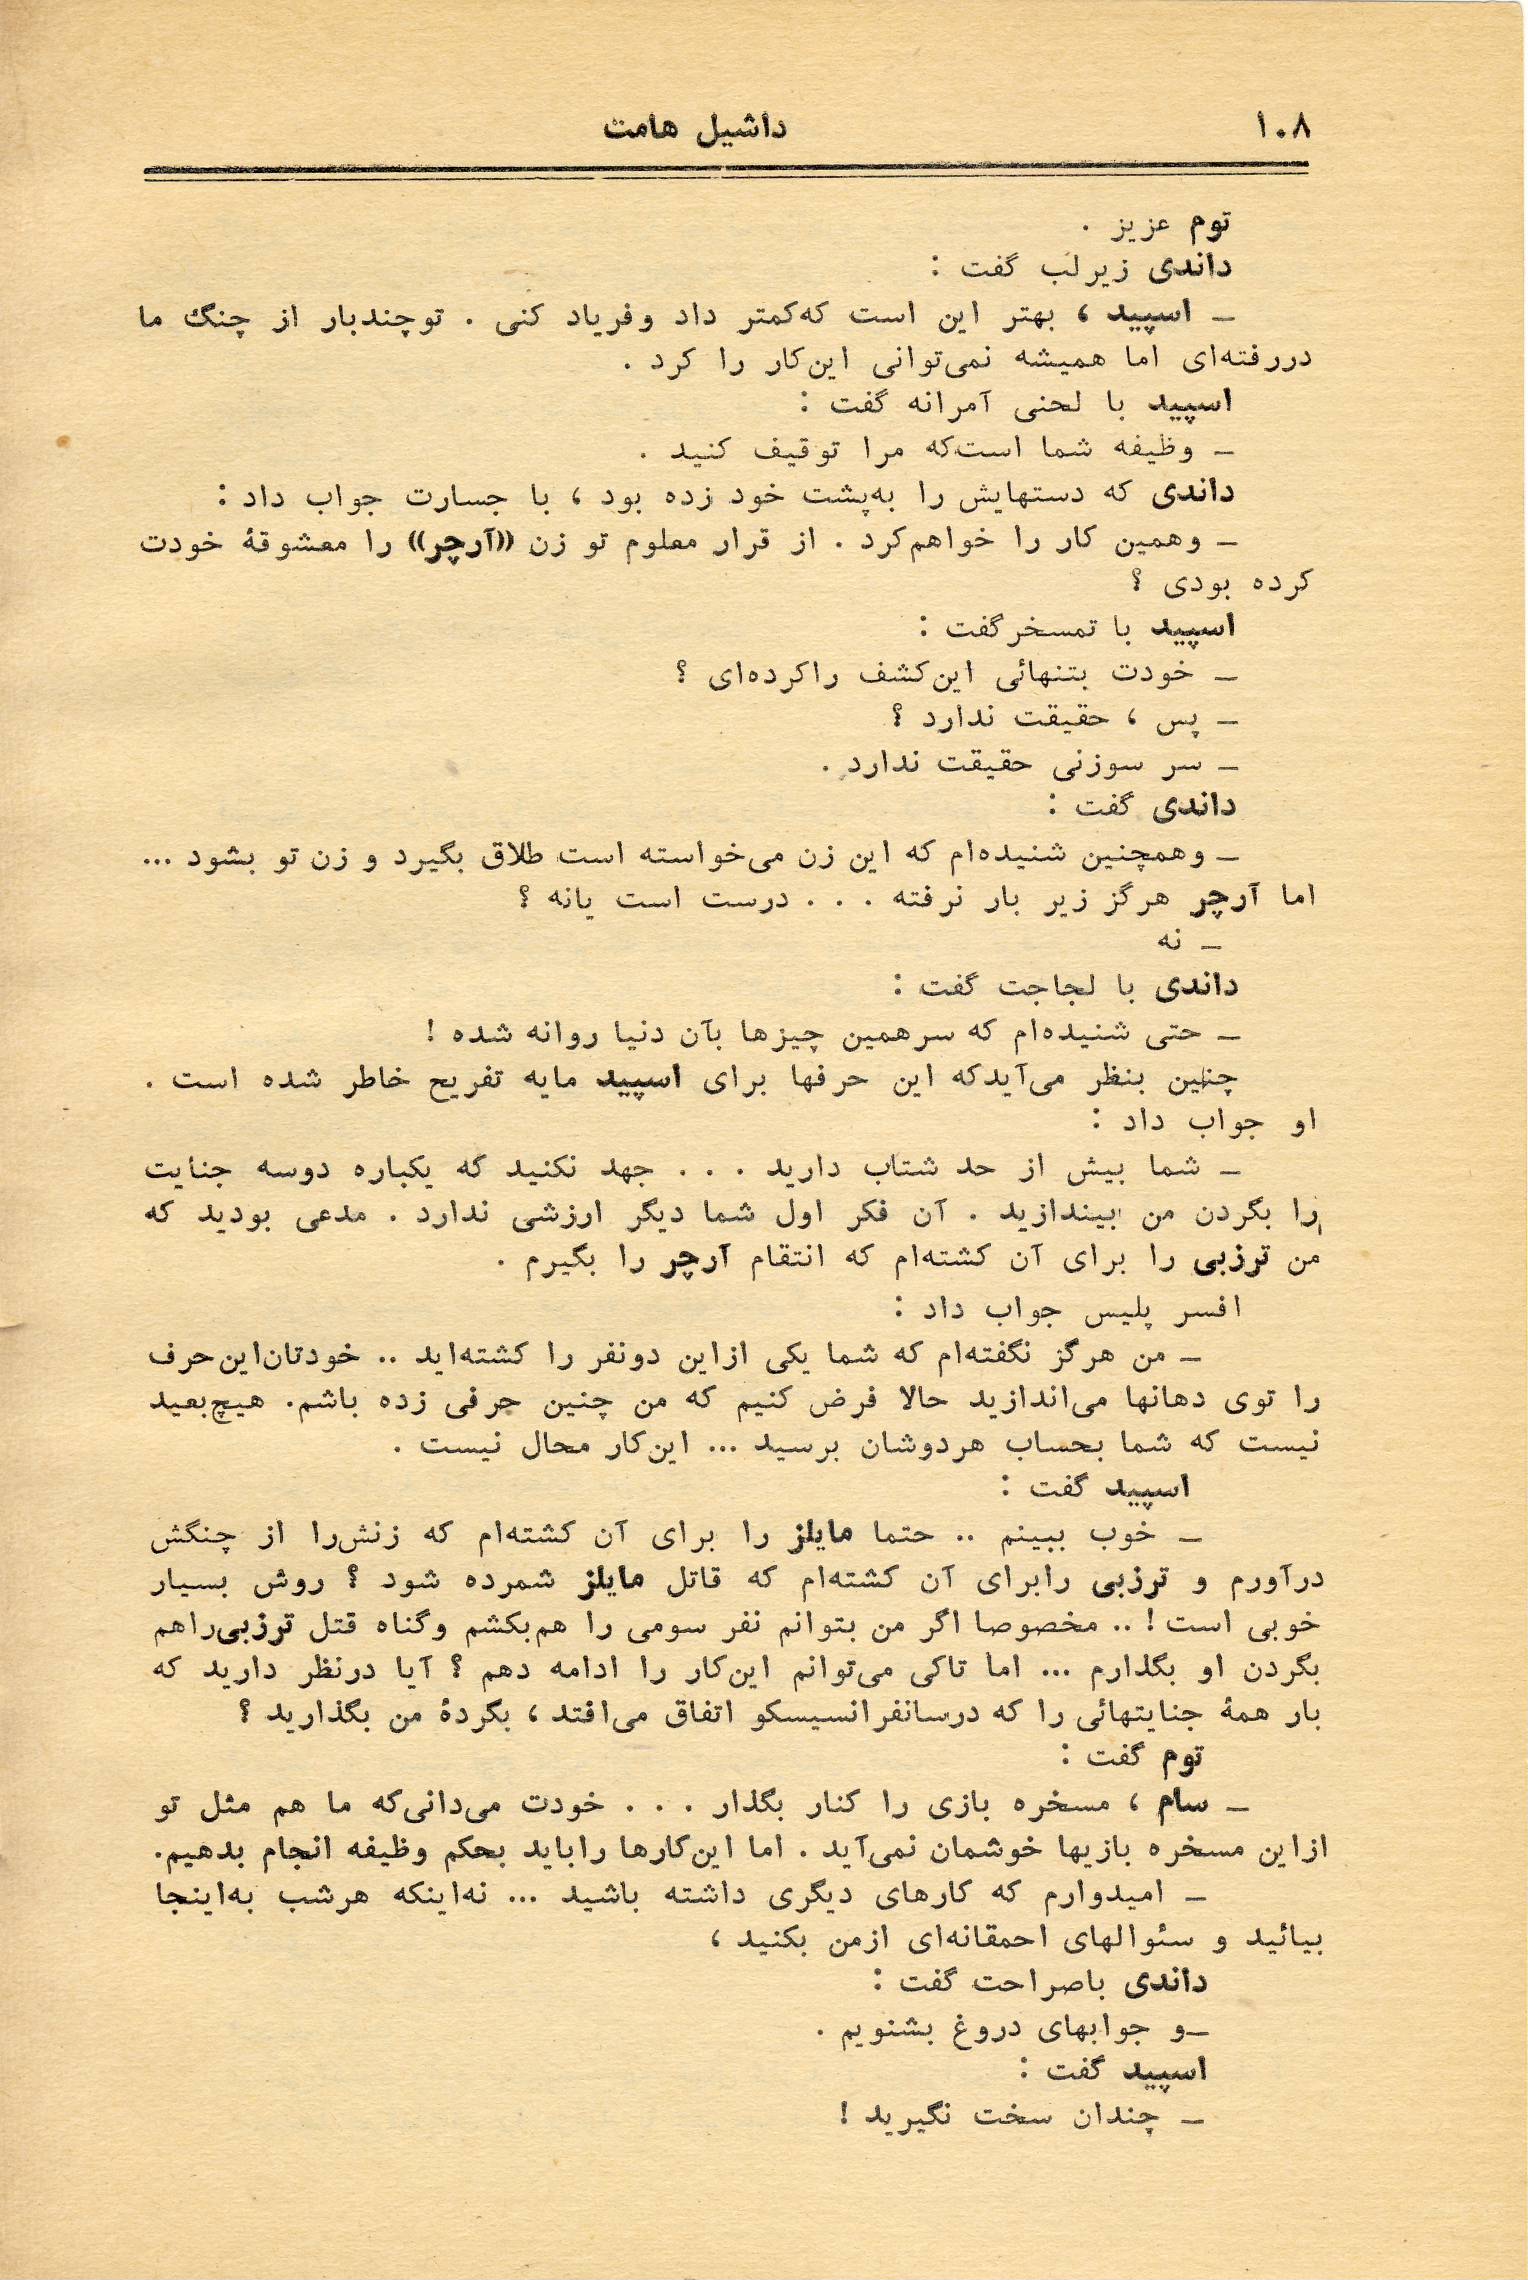 ۱۰۸
داشیل هامت
توم عزیز .
داندی زیر لب گفت :
ـ اسپید ، بهتر این است که‌کمتر داد و فریاد کنی . تو چندبار از چنگ ما
در رفته‌ای اما همیشه نمی‌توانی این‌کار را کرد .
اسپید با لحنی آمرانه گفت :
ـ وظیفه شما است‌که مرا توقیف کنید .
داندی که دستهایش را به‌پشت خود زده بود ، با جسارت جواب داد :
ـ وهمین کار را خواهم‌کرد . از قرار معلوم تو زن ((آرچر)) را معشوقهٔ خودت
کرده بودی ؟
اسپید با تمسخر گفت :
ـ خودت بتنهائی این‌کشف را کرده‌ای ؟
ـ پس ، حقیقت ندارد ؟
ـ سر سوزنی حقیقت ندارد .
داندی گفت :
ـ وهمچنین شنیده‌ام که این زن می‌خواسته است طلاق بگیرد و زن تو بشود ...
اما آرچر هرگز زیر بار نرفته . . . درست است یانه ؟
ـ نه
داندی با لجاجت گفت :
ـ حتی شنیده‌ام که سرهمین چیزها بآن دنیا روانه شده !
چنین بنظر می‌آیدکه این حرفها برای اسپید مایه تفریح خاطر شده است .
او جواب داد :
ـ شما بیش از حد شتاب دارید . . . جهد نکنید که یکباره دوسه جنایت
را بگردن من بیندازید . آن فکر اول شما دیگر ارزشی ندارد . مدعی بودید که
من ترزبی را برای آن کشته‌ام که انتقام آرچر را بگیرم .
افسر پلیس جواب داد :
ـ من هرگز نگفته‌ام که شما یکی ازاین دونفر را کشته‌اید .. خودتان‌این‌حرف
را توی دهانها می‌اندازید حالا فرض کنیم که من چنین حرفی زده باشم. هیچ‌بعید
نیست که شما بحساب هردوشان برسید ... این‌کار محال نیست .
اسپید گفت :
ـ خوب ببینم .. حتما مایلز را برای آن کشته‌ام که زنش‌را از چنگش
درآورم و ترزبی رابرای آن کشته‌ام که قاتل مایلز شمرده شود ؟ روش بسیار
خوبی است ! .. مخصوصا اگر من بتوانم نفر سومی را هم‌بکشم وگناه قتل ترزبی‌راهم
بگردن او بگذارم ... اما تاکی می‌توانم این‌کار را ادامه دهم ؟ آیا درنظر دارید که
بار همهٔ جنایتهائی را که درسانفرانسیسکو اتفاق می‌افتد ، بگردهٔ من بگذارید ؟
توم گفت :
ـ سام ، مسخره بازی را کنار بگذار . . . خودت می‌دانی‌که ما هم مثل تو
ازاین مسخره بازیها خوشمان نمی‌آید . اما این‌کارها راباید بحکم وظیفه انجام بدهیم.
ـ امیدوارم که کارهای دیگری داشته باشید ... نه‌اینکه هرشب به‌اینجا
بیائید و سئوالهای احمقانه‌ای ازمن بکنید ،
داندی باصراحت گفت :
ـو جوابهای دروغ بشنویم .
اسپید گفت :
ـ چندان سخت نگیرید !